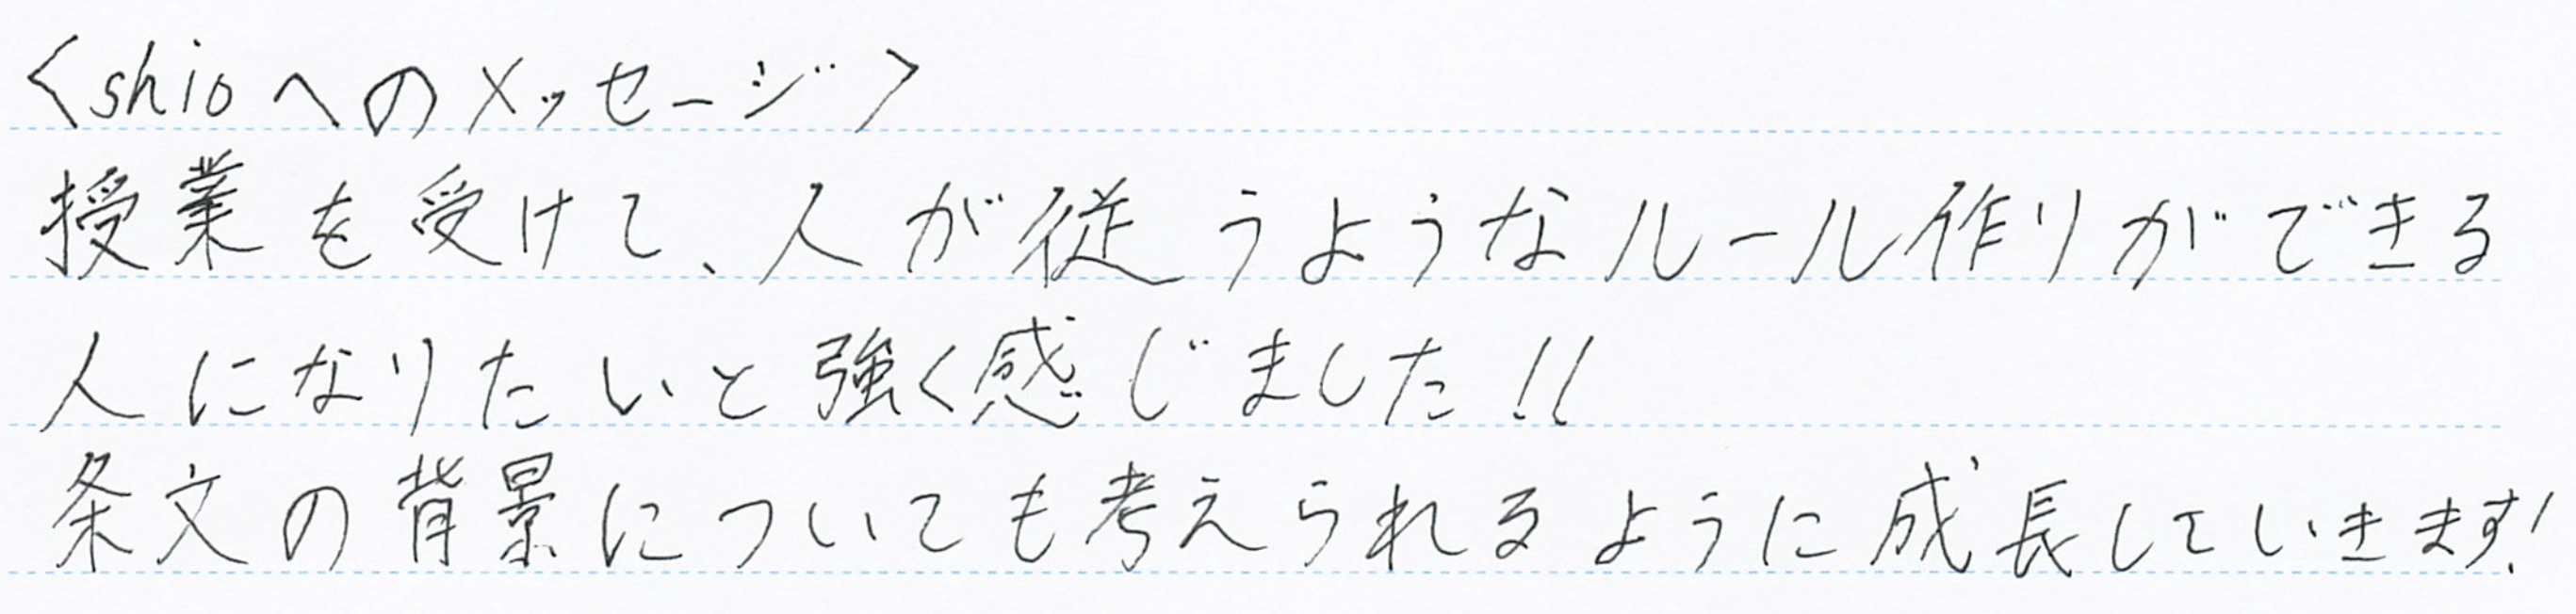 <shioへのメッセージ>
授業を受けて、人が従うようなルール作りができる
人になりたいと強く感じました!!
条文の背景についても考えられるように成長していきます!